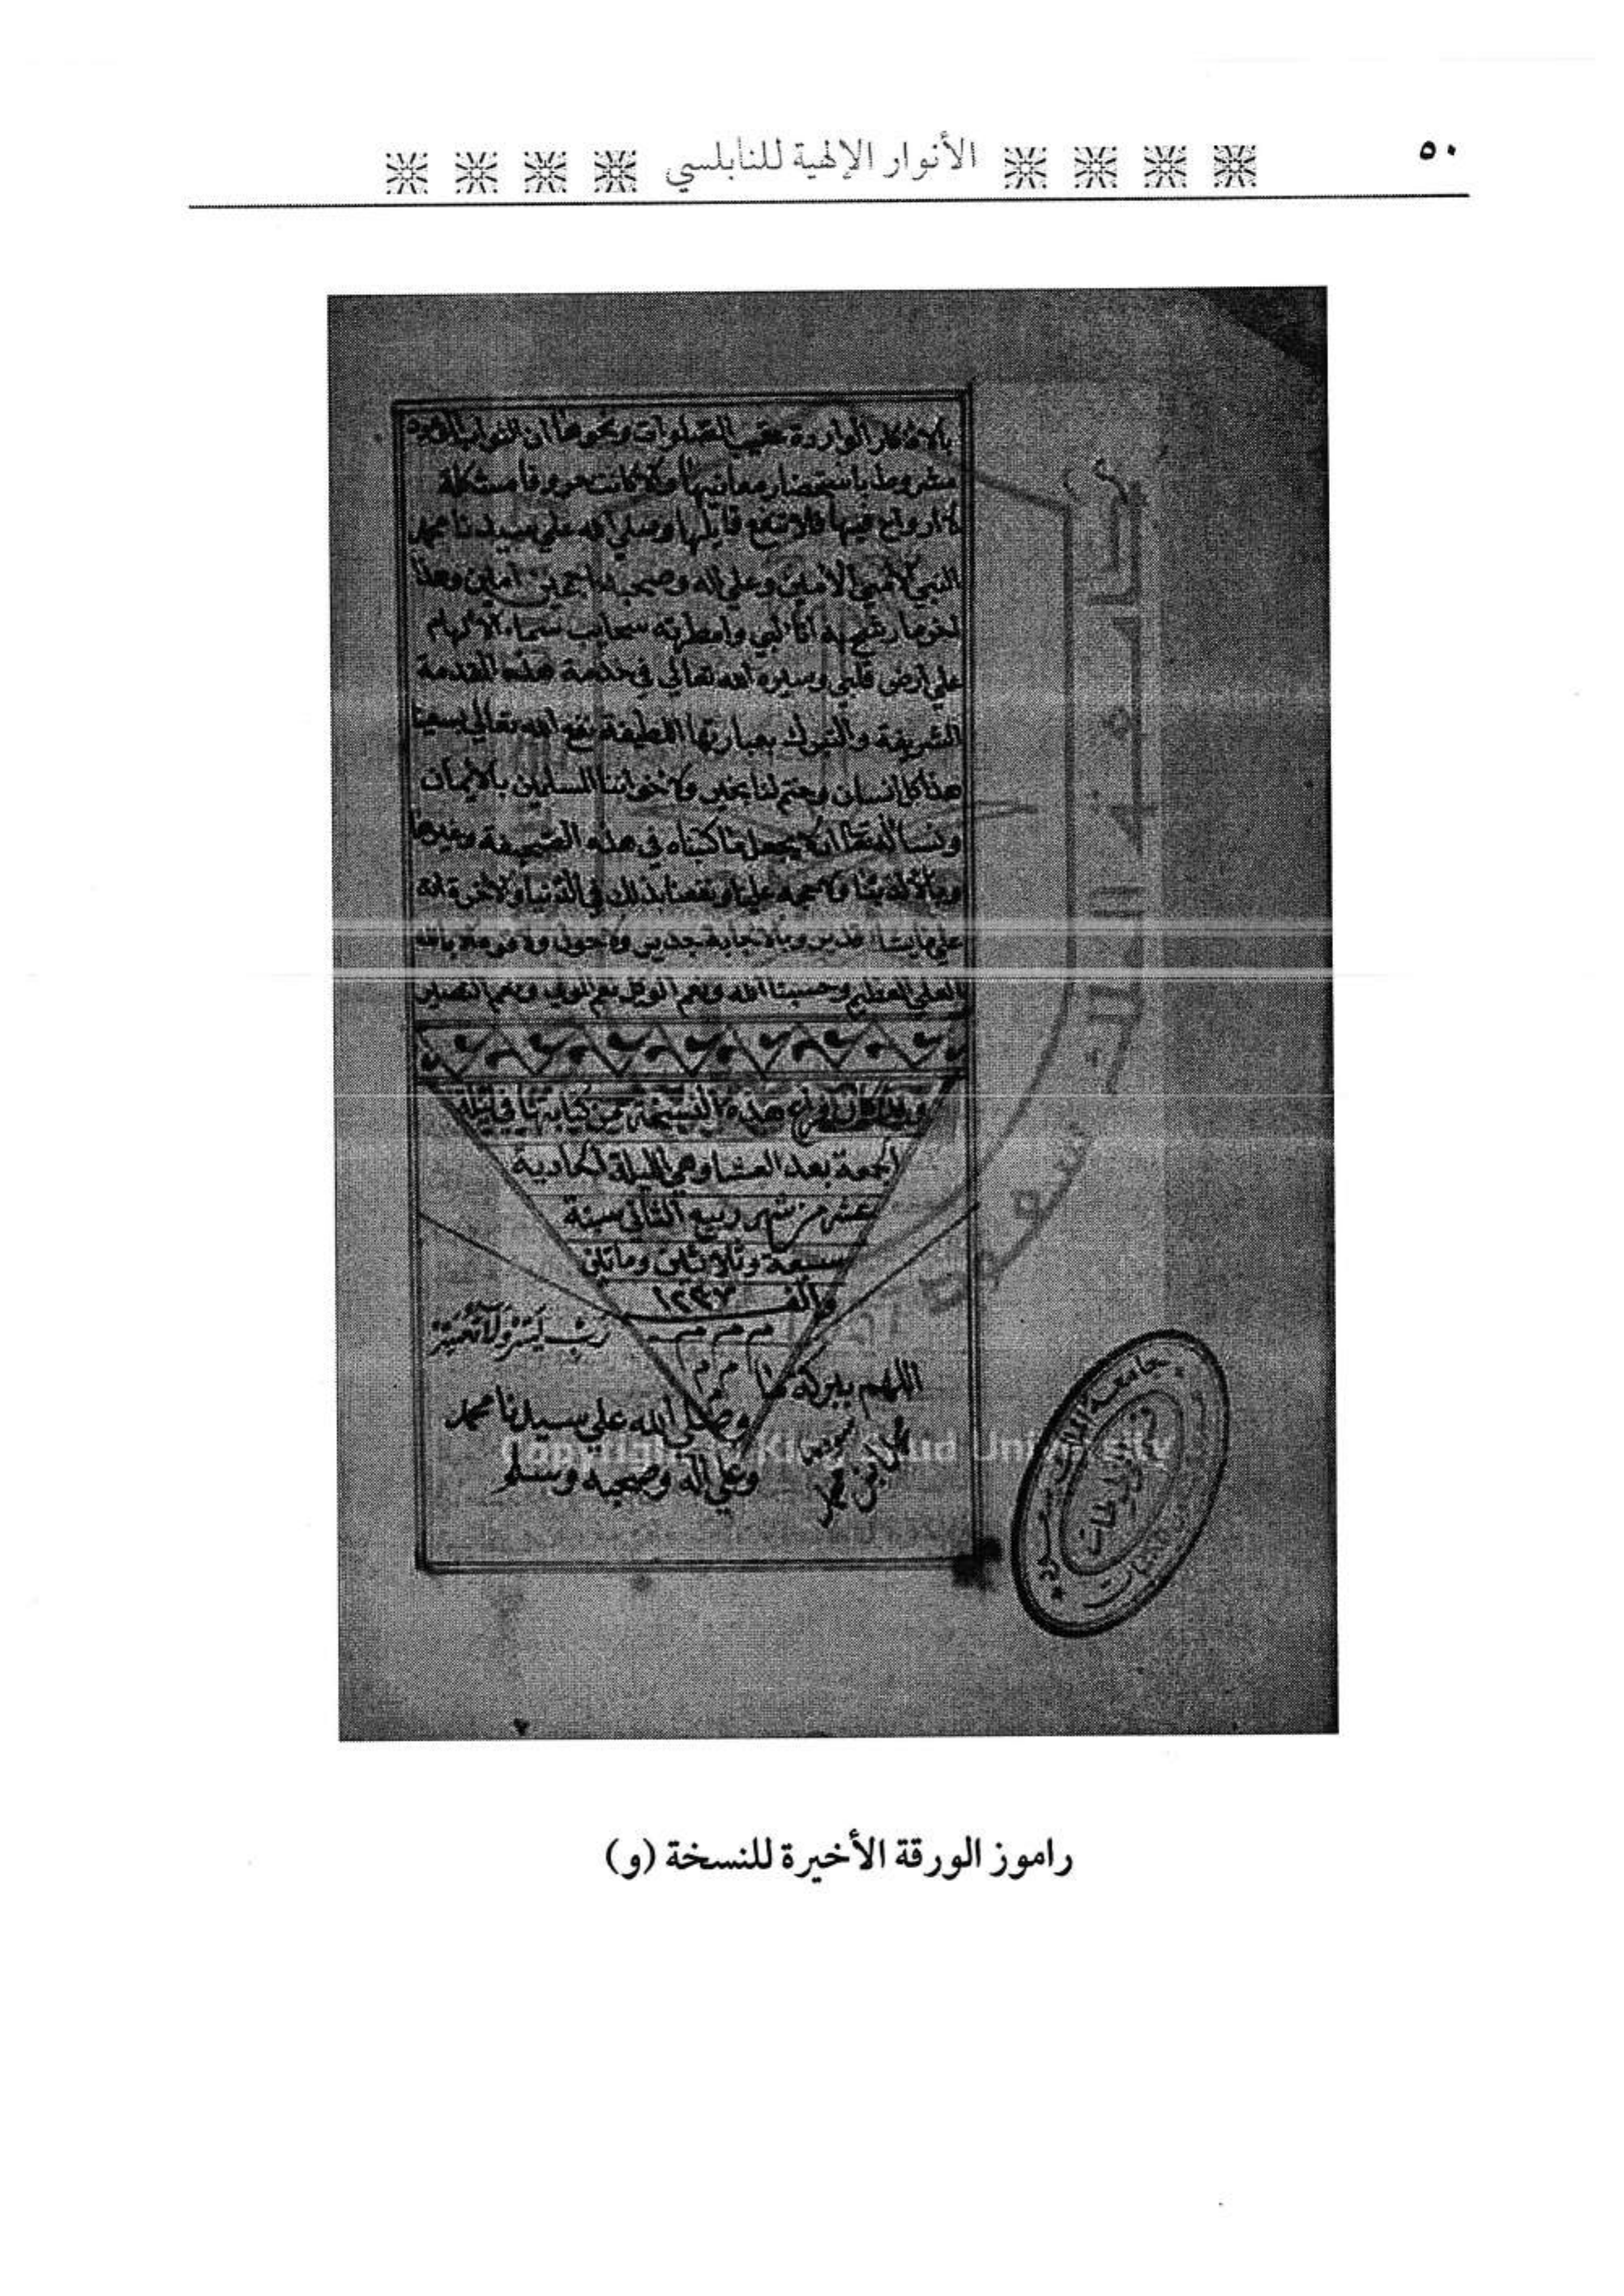 ٥٠
الأنوار الإلهية للنابلسي
بالاذكار الواردة عقيب الصلوات ونحوها ان الثواب
مشروط باستحضار معانيها والا كانت حروفا مشكلة
لا ارواح فيها فلا تنفع قايلها وصلى الله على سيدنا محمد
النبي الامي الامين وعلى اله وصحبه اجمعين امين وهذا
اخر ما رشح به وامطرته سحايب سماء الالهام
على ارض قلبي ويسره الله تعالى في خدمة هذه المقدمة
الشريفة والتبرك بعبارتها اللطيفة نفع الله تعالى بسعينا
هذا كل انسان وختم لنا بخير ولاخواننا المسلمين بالايمان
ونسال الله تعالى ان لا يجعل ما كتبناه في هذه الصحيفة وغيرها
وبالا لدينا ولا حجة علينا وينفعنا بذلك في الدنيا والاخرة انه
على ما يشاء قدير وبالاجابة جدير ولا حول ولا قوة الا بالله
العلي العظيم وحسبنا الله ونعم الوكيل نعم المولى ونعم النصير
وكان الفراغ هذه النسخة من كتابتها في ليلة
الجمعة بعد العشا وهي الليلة الحادية
عشر من شهر ربيع الثاني سنة
وثلاثين وماتين
والف ١٢٣٧
م م م م
رب يسر ولا تعسر
م م م
اللهم ببركة
وصلى الله على سيدنا محمد
وعلى اله وصحبه وسلم
ابن محمد
جامعة الملك سعود
Copyright © King Saud University
راموز الورقة الأخيرة للنسخة (و)